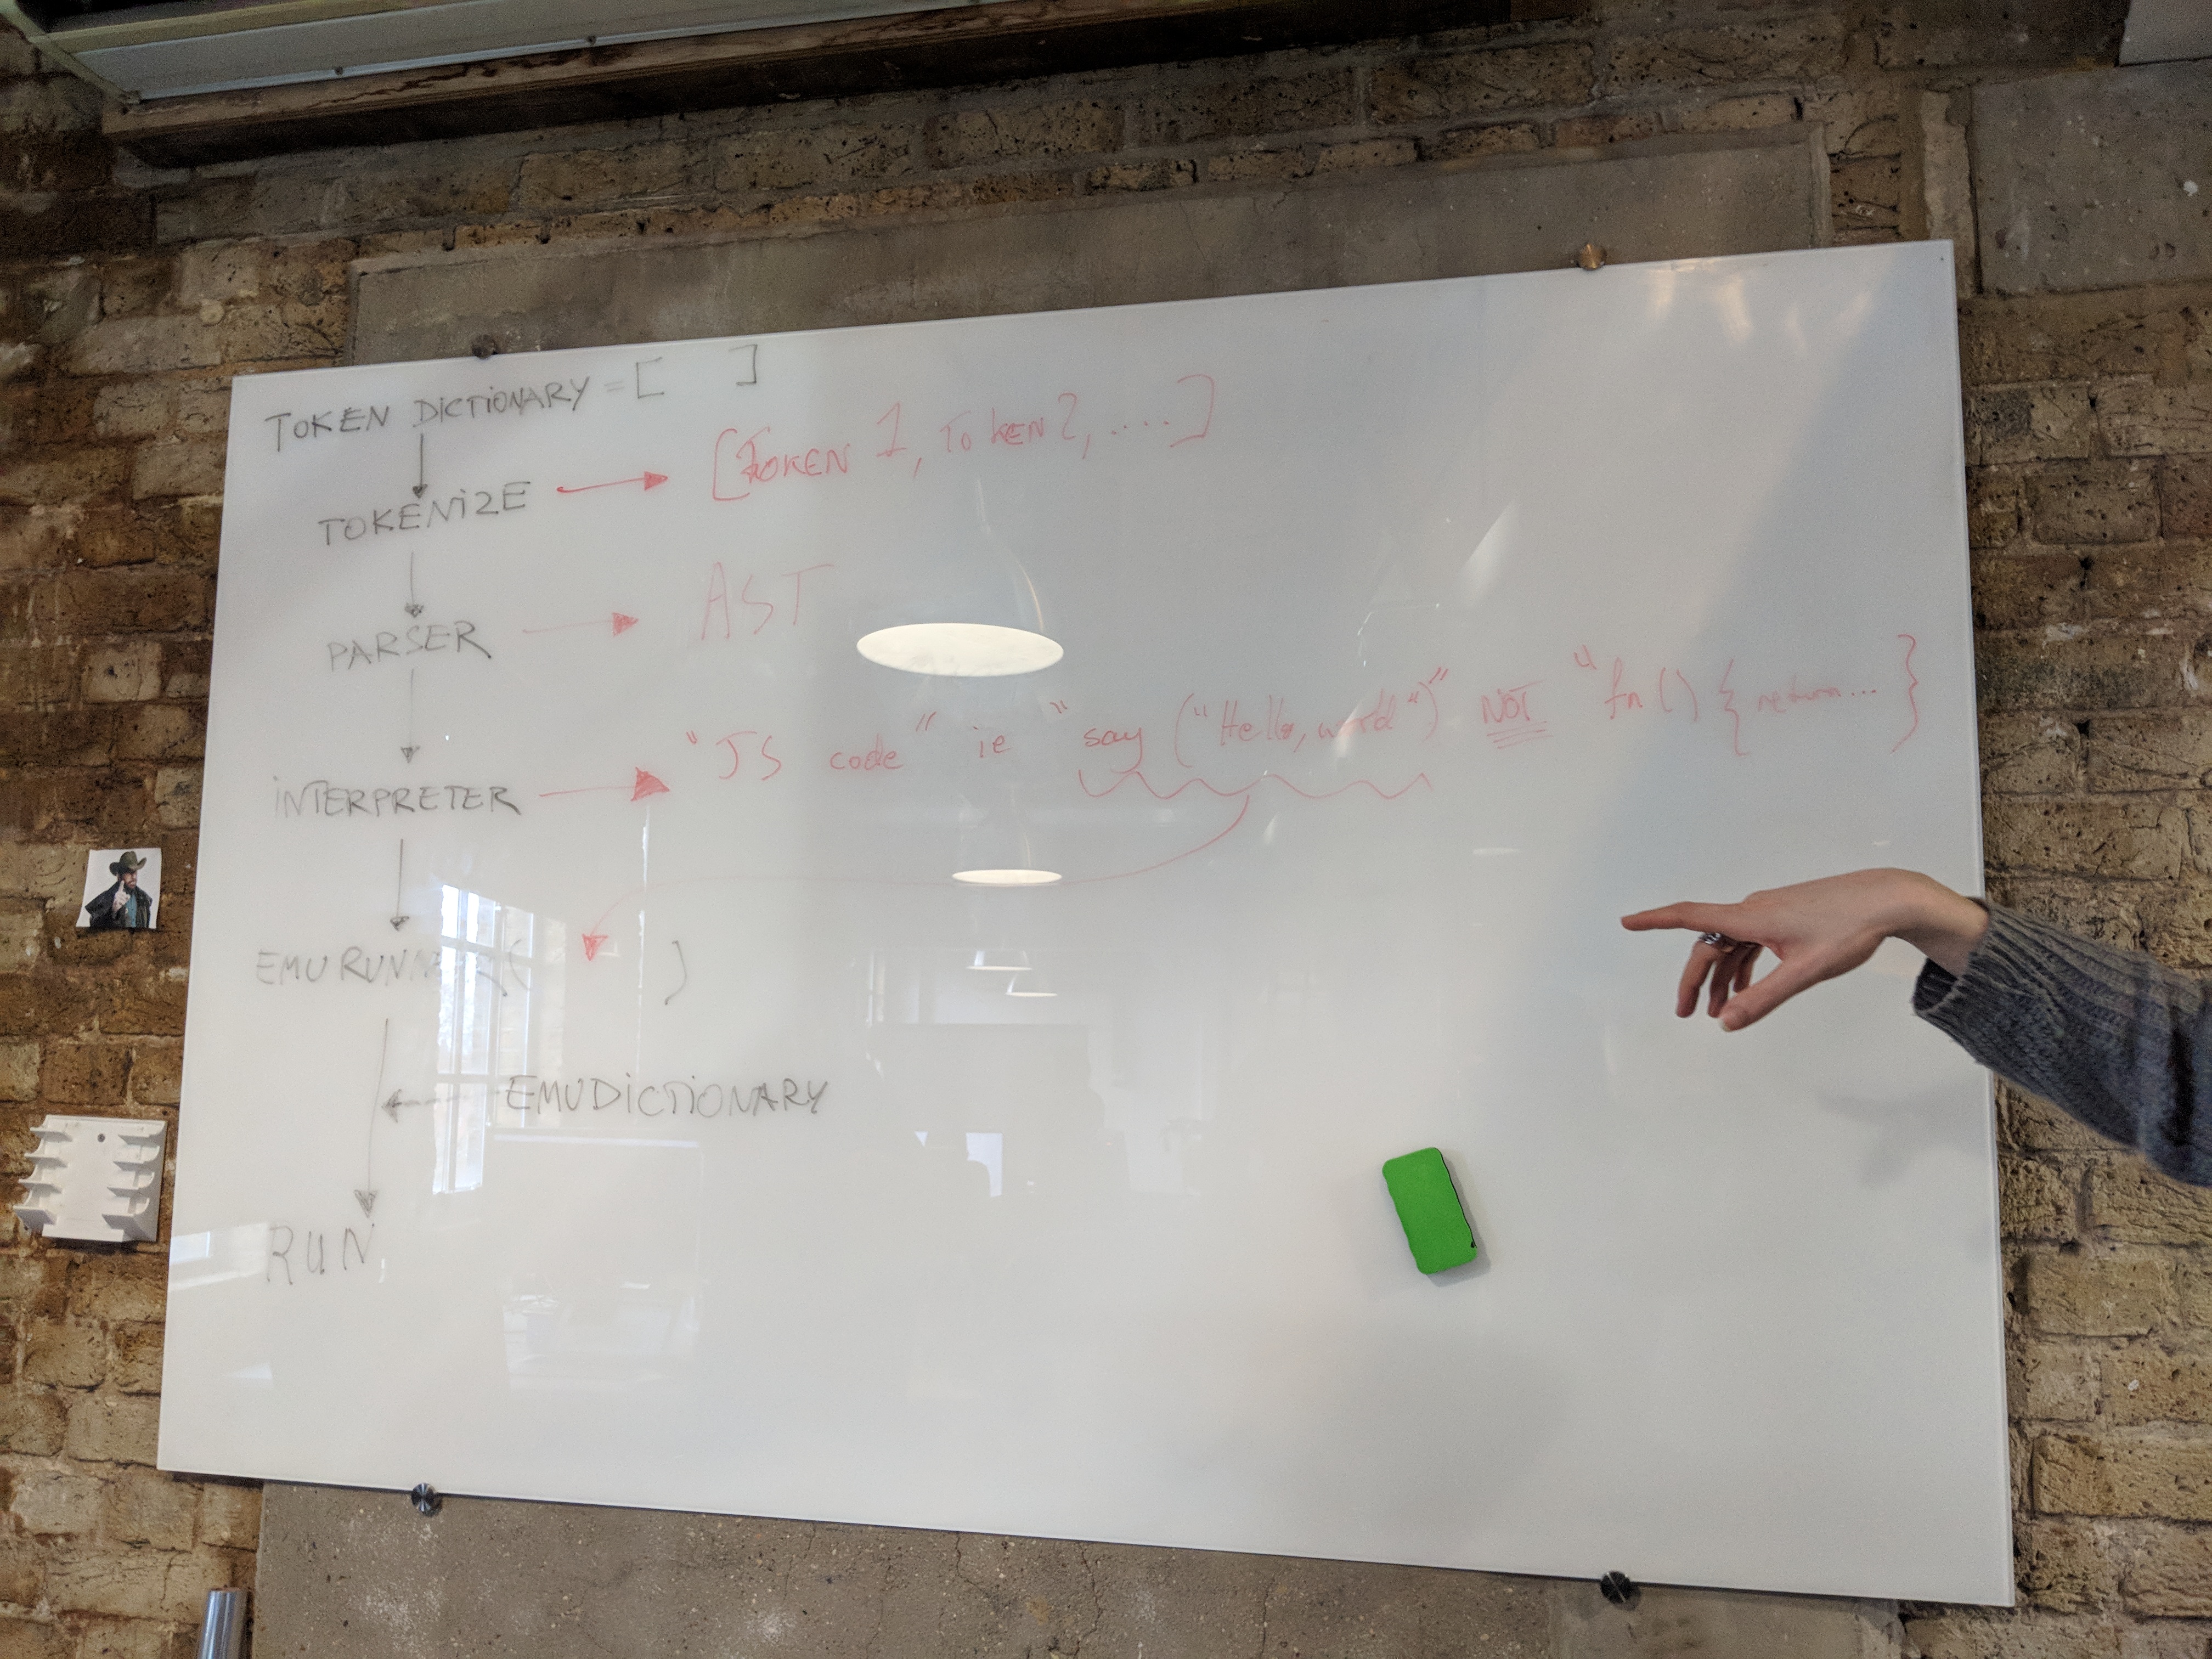 TOKEN DICTIONARY = [ ]
TOKENIZE
[TOKEN 1, TOKEN 2, ....]
PARSER
AST
INTERPRETER
"JS code" ie "say ("Hello, world")" NOT "fn () { return... }
EMU RUNNER ( )
EMUDICTIONARY
RUN